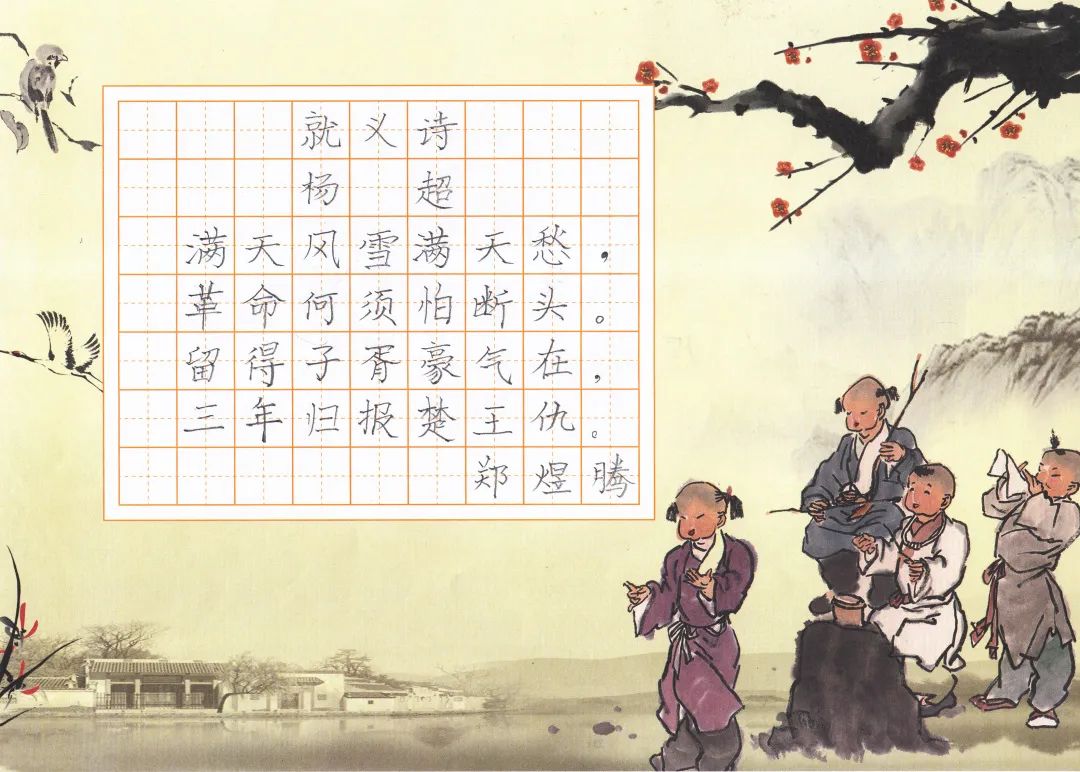 就义诗
杨 超
满天风雪满天愁，
革命何须怕断头。
留得子胥豪气在，
三年归报楚王仇。
郑煜腾